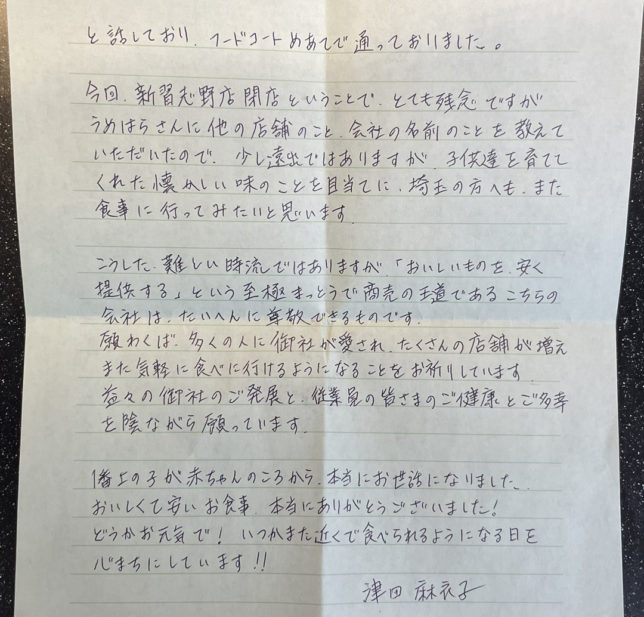 と話しており、フードコートめあてで通っておりました。
今回、新習志野店閉店ということで、とても残念ですが
うめはらさんに他の店舗のこと、会社の名前のことを教えて
いただいたので、少し遠出ではありますが、子供達を育てて
くれた懐かしい味のことを目当てに、埼玉の方へも、また
食事に行ってみたいと思います。
こうした、難しい時流ではありますが、「おいしいものを、安く
提供する」という至極まっとうで商売の王道であるこちらの
会社は、たいへんに尊敬できるものです。
願わくば、多くの人に御社が愛され、たくさんの店舗が増え
また気軽に食べに行けるようになることをお祈りしています。
益々の御社のご発展と、従業員の皆さまのご健康とご多幸
を陰ながら願っています。
1番上の子が赤ちゃんのころから、本当にお世話になりました。
おいしくて安いお食事、本当にありがとうございました!
どうかお元気で! いつかまた近くで食べられるようになる日を
心まちにしています!!
津田 麻衣子